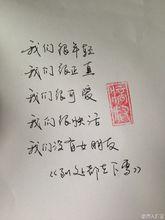 我们很年轻
我们很正直
我们很可爱
我们很快活
我们没有女朋友
《到处都在下雪》